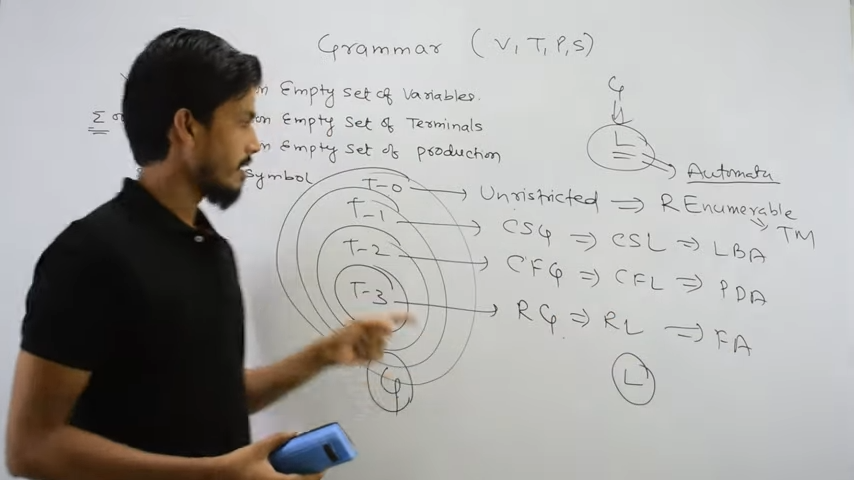 Grammar (V, T, P, S)
Empty set of variables.
Σ Empty set of Terminals
Empty set of production
symbol
G
L
Automata
T-0 → Unristricted ⇒ REnumerable
TM
T-1 → CSG ⇒ CSL ⇒ LBA
T-2 → CFG ⇒ CFL ⇒ PDA
T-3 → RG ⇒ RL ⇒ FA
G L